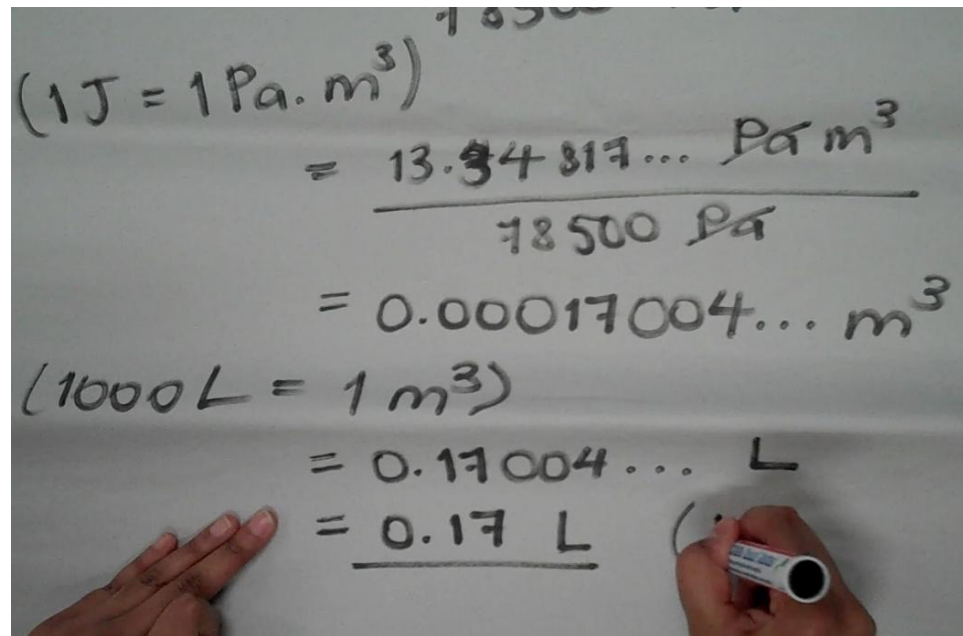 (1J = 1Pa. m³)
= 13.34817... Pa m³
78500 Pa
= 0.00017004... m³
(1000L = 1 m³)
= 0.17004... L
= 0.17 L (